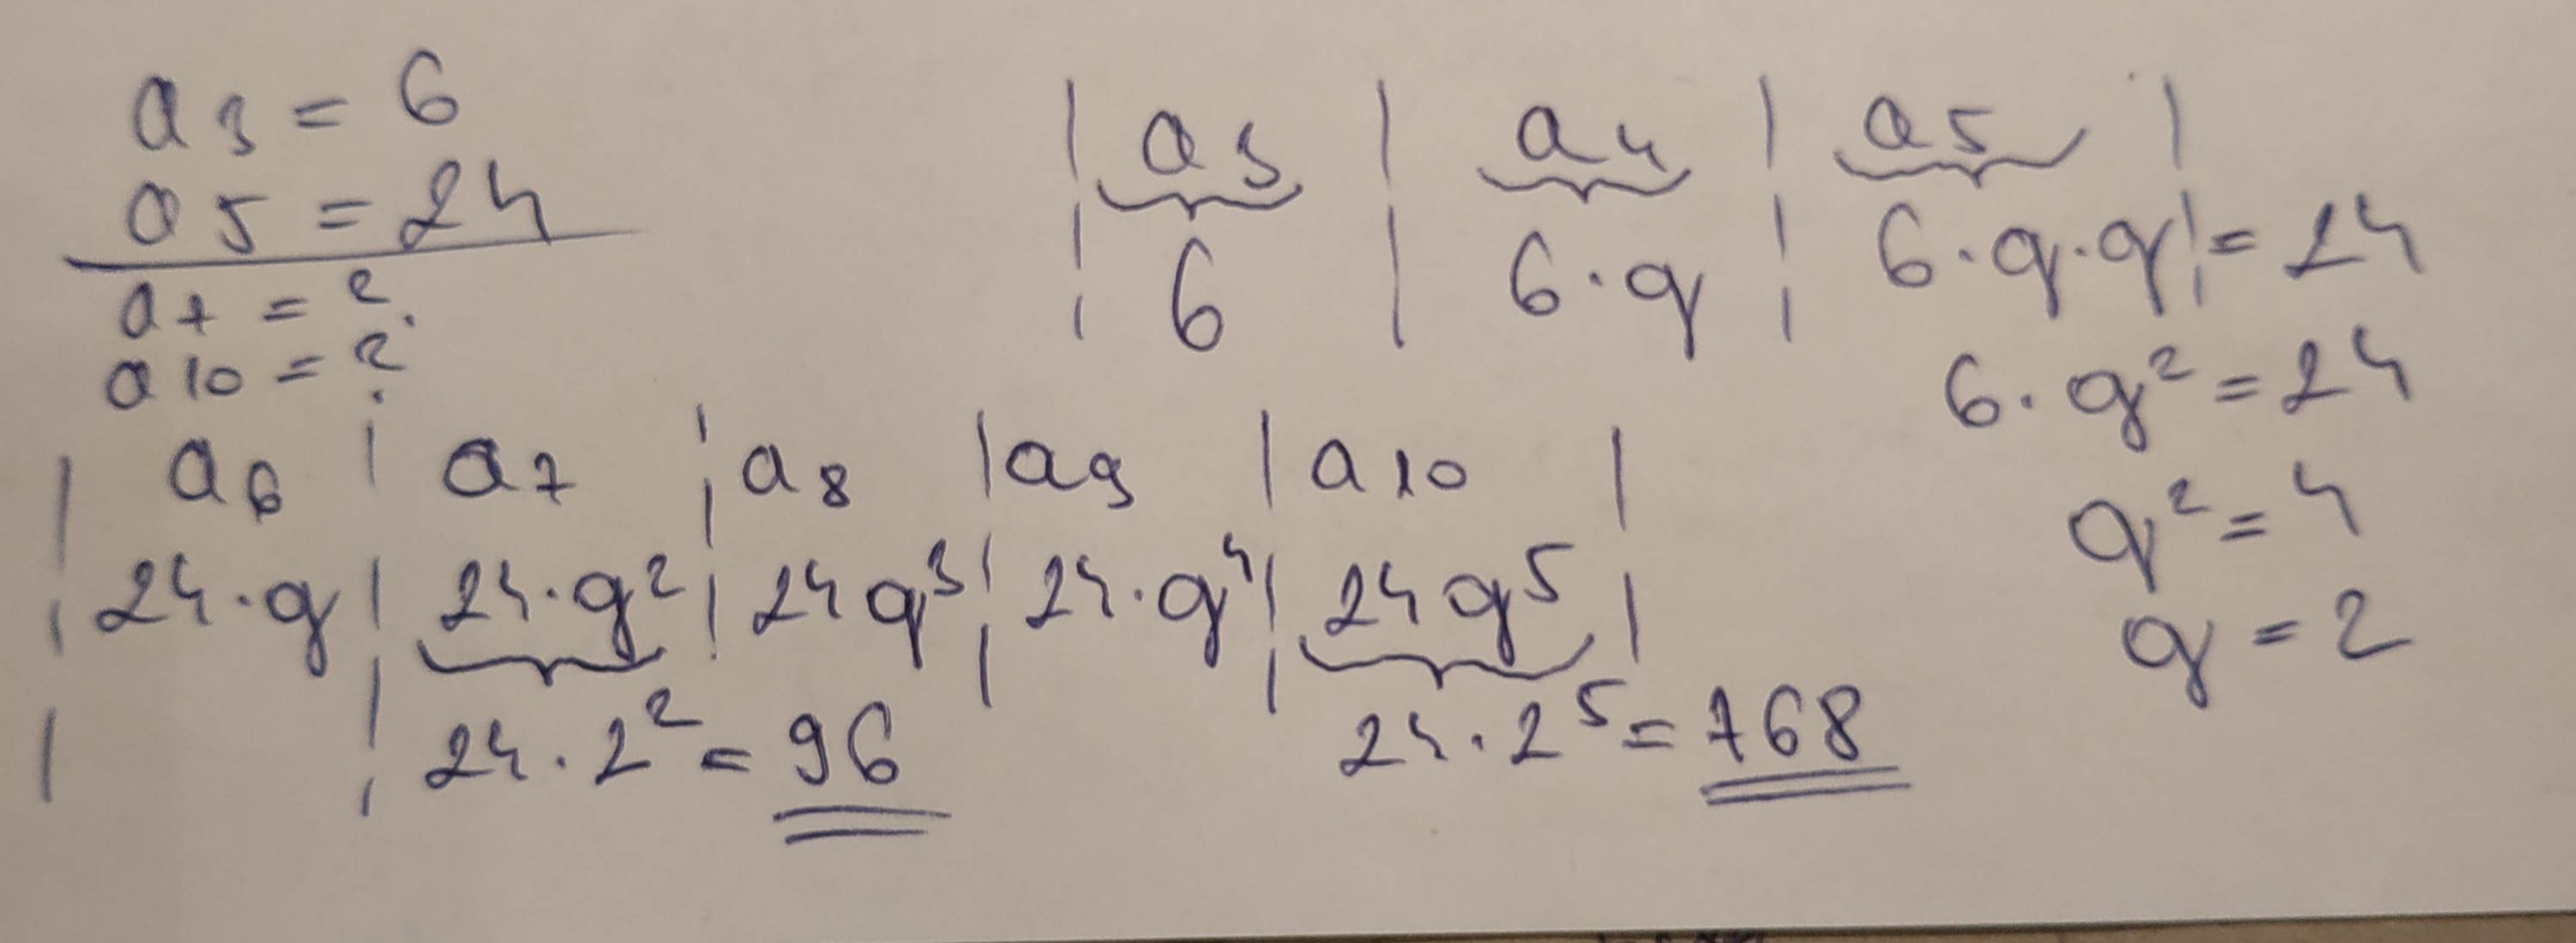 a3 = 6
a5 = 24
a7 = ?
a10 = ?
| a3 | a4 | a5 |
| 6 | 6·q | 6·q·q | = 24
6·q² = 24
q² = 4
q = 2
| a6 | a7 | a8 | a9 | a10 |
| 24·q | 24·q² | 24q³ | 24·q⁴ | 24q⁵ |
24·2² = 96
24·2⁵ = 768